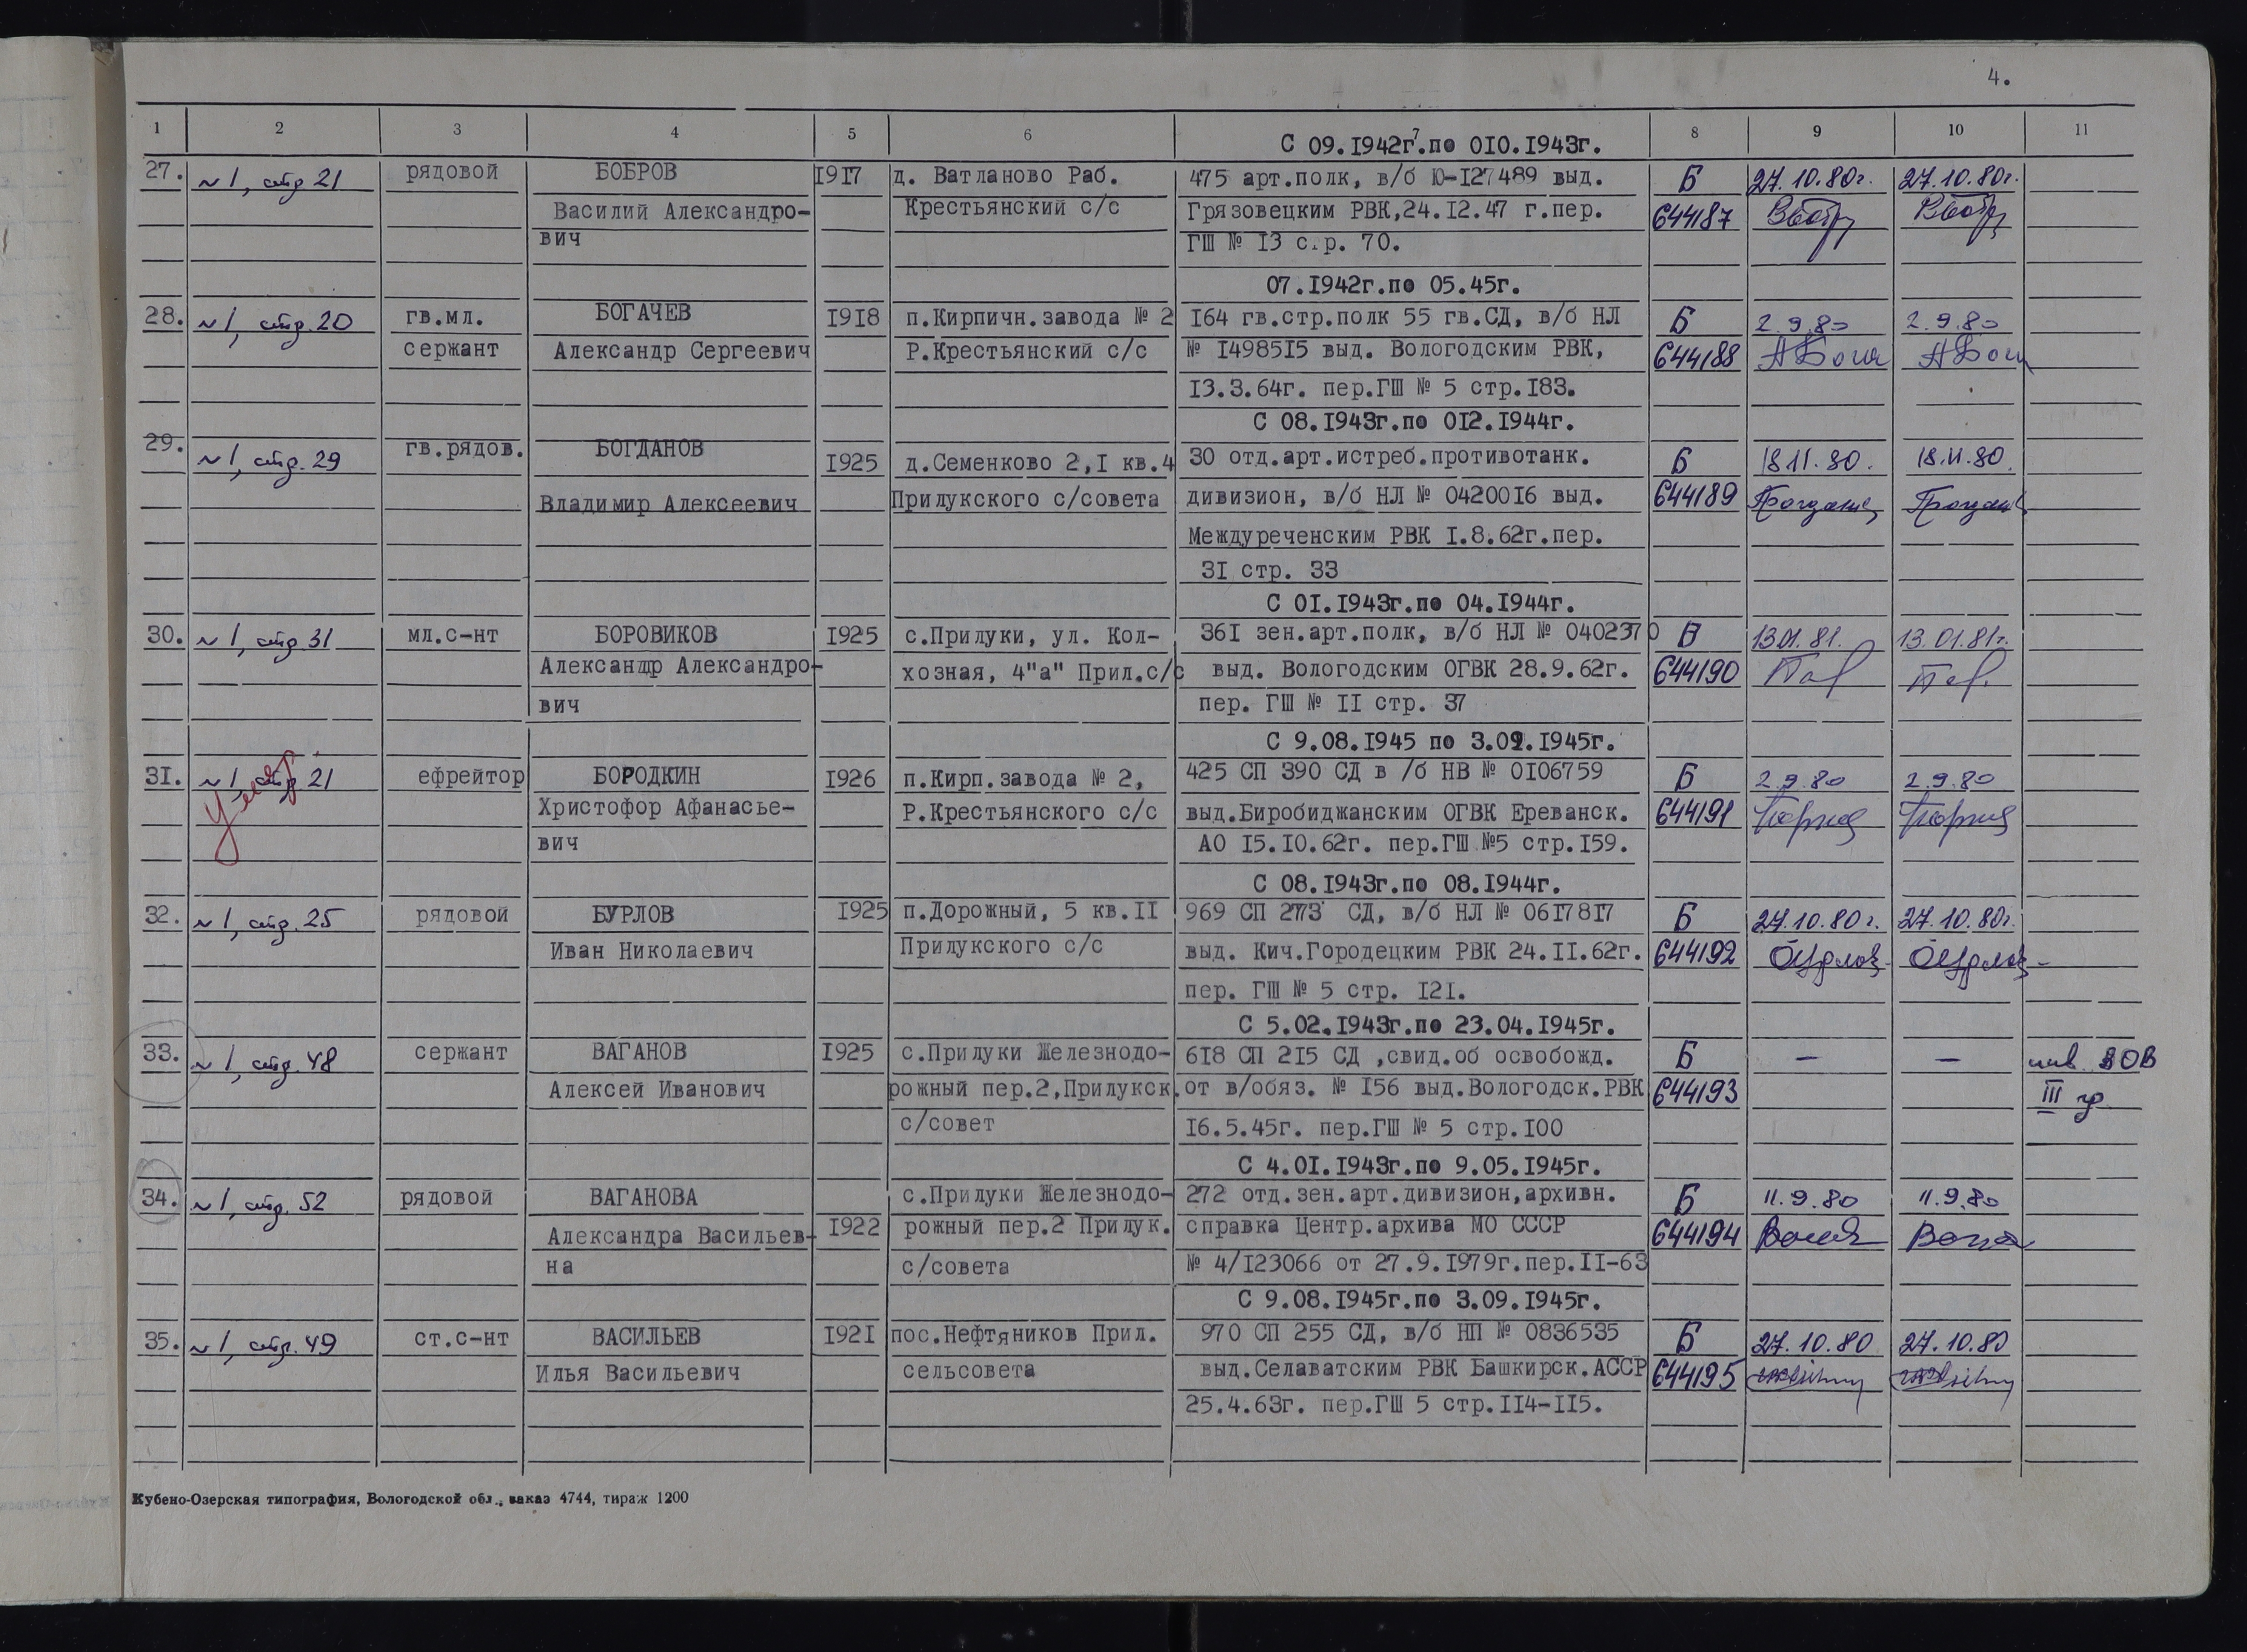 4.
1 2 3 4 5 6 7 8 9 10 11
С 09.1942г.по 010.1943г.
27. №1, стр 21 рядовой БОБРОВ 1917 д. Ватланово Раб. 475 арт.полк, в/б Ю-127489 выд. Б 27.10.80г. 27.10.80г.
Василий Александро- Крестьянский с/с Грязовецким РВК,24.12.47 г.пер. 644187
вич ГШ № 13 стр. 70.
07.1942г.по 05.45г.
28. №1, стр. 20 гв.мл. БОГАЧЕВ 1918 п.Кирпичн.завода № 2 164 гв.стр.полк 55 гв.СД, в/б НЛ Б 2.9.80 2.9.80
сержант Александр Сергеевич Р.Крестьянский с/с № 1498515 выд. Вологодским РВК, 644188
13.3.64г. пер.ГШ № 5 стр.183.
С 08.1943г.по 012.1944г.
29. №1, стр. 29 гв.рядов. БОГДАНОВ 1925 д.Семенково 2,1 кв.4 30 отд.арт.истреб.противотанк. Б 18.11.80. 18.11.80.
Владимир Алексеевич Прилукского с/совета дивизион, в/б НЛ № 0420016 выд. 644189
Междуреченским РВК 1.8.62г.пер.
31 стр. 33
С 01.1943г.по 04.1944г.
30. №1, стр 31 мл.с-нт БОРОВИКОВ 1925 с.Прилуки, ул. Кол- 361 зен.арт.полк, в/б НЛ № 0402370 В 13.01.81. 13.01.81г.
Александр Александро- хозная, 4"а" Прил.с/с выд. Вологодским ОГВК 28.9.62г. 644190
вич пер. ГШ № 11 стр. 37
С 9.08.1945 по 3.09.1945г.
31. №1, стр 21 ефрейтор БОРОДКИН 1926 п.Кирп.завода № 2, 425 СП 390 СД в /б НВ № 0106759 Б 2.9.80 2.9.80
Христофор Афанасье- Р.Крестьянского с/с выд.Биробиджанским ОГВК Ереванск. 644191
вич АО 15.10.62г. пер.ГШ №5 стр.159.
С 08.1943г.по 08.1944г.
32. №1, стр. 25 рядовой БУРЛОВ 1925 п.Дорожный, 5 кв.11 969 СП 273 СД, в/б НЛ № 0617817 Б 27.10.80г. 27.10.80г.
Иван Николаевич Прилукского с/с выд. Кич.Городецким РВК 24.11.62г. 644192
пер. ГШ № 5 стр. 121.
С 5.02.1943г.по 23.04.1945г.
33. №1, стр. 48 сержант ВАГАНОВ 1925 с.Прилуки Железнодо- 618 СП 215 СД ,свид.об освобожд. Б — — инв. ВОВ
Алексей Иванович рожный пер.2,Прилукск. от в/обяз. № 156 выд.Вологодск.РВК 644193 III гр
с/совет 16.5.45г. пер.ГШ № 5 стр.100
С 4.01.1943г.по 9.05.1945г.
34. №1, стр. 52 рядовой ВАГАНОВА с.Прилуки Железнодо- 272 отд.зен.арт.дивизион,архивн. Б 11.9.80 11.9.80
Александра Васильев- 1922 рожный пер.2 Прилук. справка Центр.архива МО СССР 644194
на с/совета № 4/123066 от 27.9.1979г.пер.11-63
С 9.08.1945г.по 3.09.1945г.
35. №1, стр. 49 ст.с-нт ВАСИЛЬЕВ 1921 пос.Нефтяников Прил. 970 СП 255 СД, в/б НП № 0836535 Б 27.10.80 27.10.80
Илья Васильевич сельсовета выд.Селаватским РВК Башкирск.АССР 644195
25.4.63г. пер.ГШ 5 стр.114-115.
Кубено-Озерская типография, Вологодской обл., заказ 4744, тираж 1200